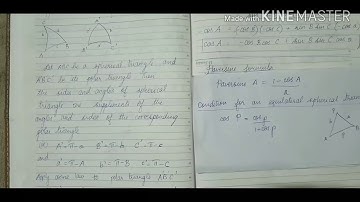 Made with KINEMASTER
Let ABC be a spherical triangle and
A'B'C' be its polar triangle then
the sides and angles of spherical
triangle are supplements of the
angles and sides of the corresponding
polar triangle
A' = π-a B' = π-b C' = π-c
and
a' = π-A b' = π-B c' = π-C
Apply cosine law to polar triangle A'B'C'
cos A = -cos B cos C + sin B sin C cos a
Haversine formula
Haversine A = 1-cos A
2
Condition for an equilateral spherical triangle
cos P = cos p
1+cos p